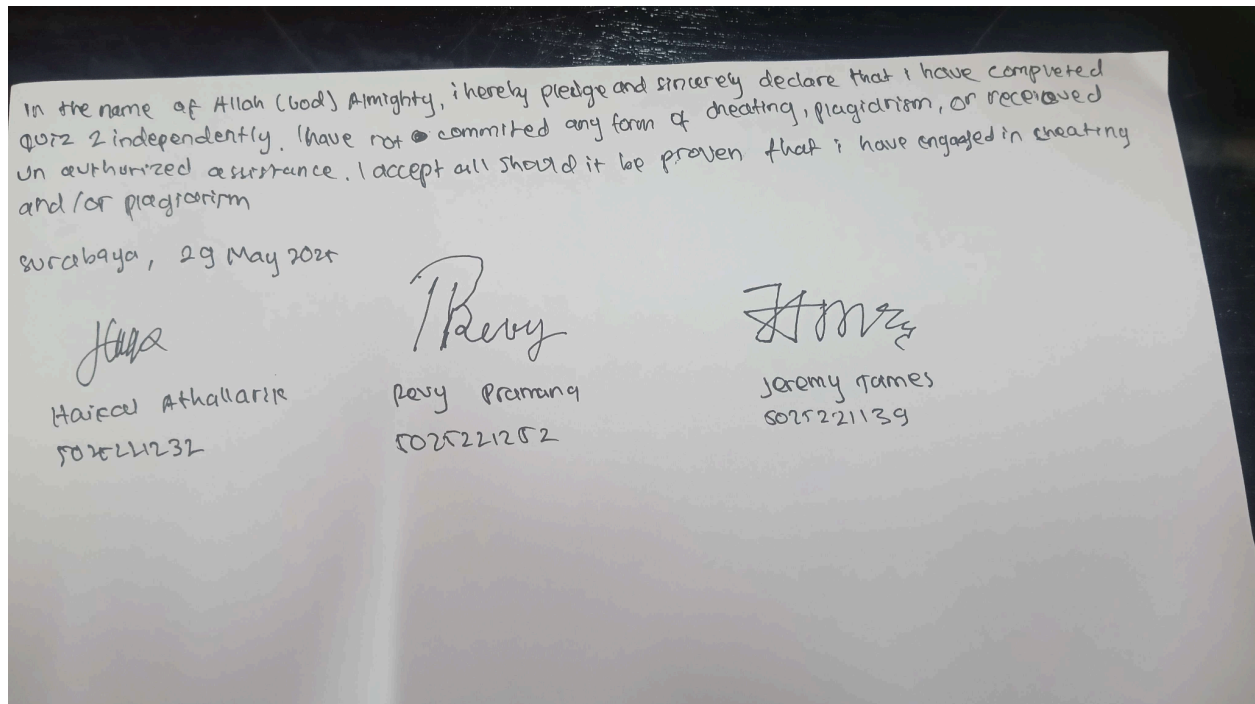 In the name of Allah (God) Almighty, i hereby pledge and sincerely declare that i have completed
Quiz 2 independently. I have not commited any form of cheating, plagiarism, or received
unauthorized assistance. I accept all should it be proven that i have engaged in cheating
and/or plagiarism
Surabaya, 29 May 2025
Revy
Haikal Athallarik Revy Pramana Jeremy James
5025221252 5025221139